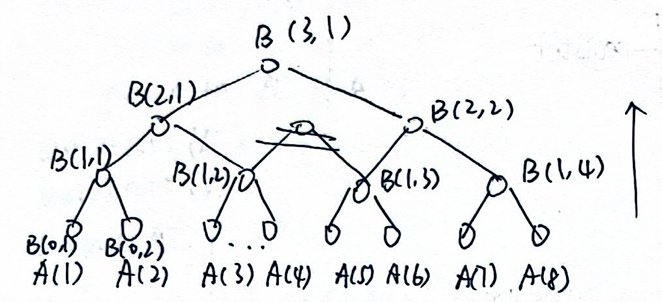 B (3,1)
B(2,1) B(2,2)
B(1,1) B(1,2) B(1,3) B(1,4)
B(0,1) B(0,2) ...
A(1) A(2) A(3) A(4) A(5) A(6) A(7) A(8)